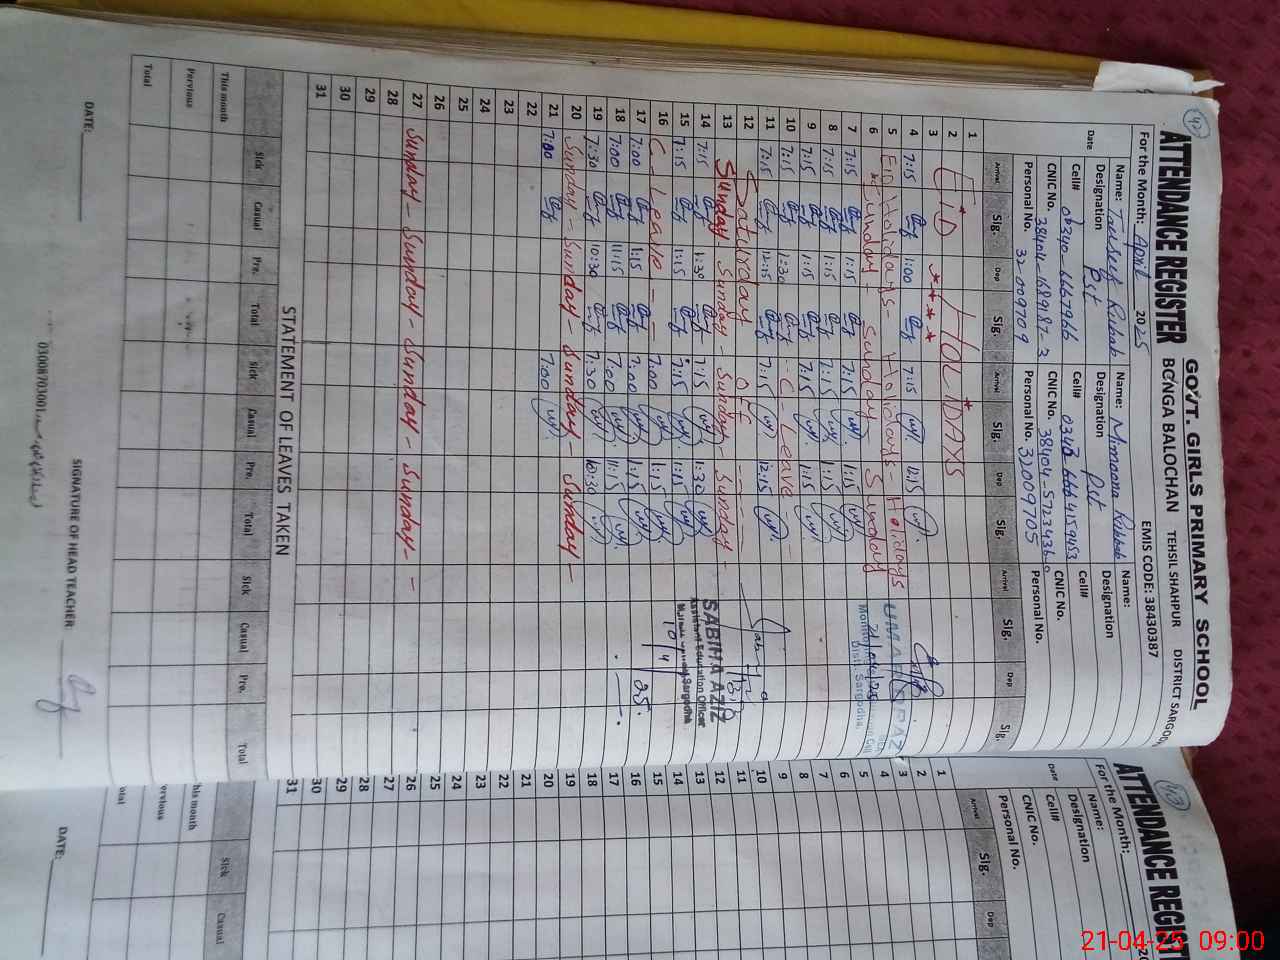 42
ATTENDANCE REGISTER GOV'T. GIRLS PRIMARY SCHOOL
BONGA BALOCHAN TEHSIL SHAHPUR DISTRICT SARGODHA
For the Month: April 2025 EMIS CODE: 38430387
Name: Tauseef Rubab Name: Mimoona Rubbab Name:
Designation Pst Designation Pst Designation
Cell# Cell# Cell#
CNIC No. 38404-1689187-3 CNIC No. 38404-5723436-0 CNIC No.
Personal No. 32009709 Personal No. 32009705 Personal No.
Date Arrival Sig. Dep Sig. Arrival Sig. Dep Sig. Arrival Sig. Dep Sig.
1
2 EID **** HOLIDAYS
3
4 7:15 1:00 7:15 12:15
5 EID Holidays - Holidays - Holidays
6 Sunday - Sunday - Sunday
7 7:15 1:15 7:15 1:15
8 7:15 1:15 7:15 1:15
9 7:15 1:15 7:15 1:15
10 7:15 1:30 - C - Leave -
11 7:15 12:15 7:15 12:15
12 Saturday OFF
13 Sunday Sunday - Sunday - Sunday -
14 7:15 1:30 7:15 1:30
15 7:15 1:15 7:15 1:15
16 C - Leave - 7:00 1:15
17 7:00 1:15 7:00 1:15
18 7:00 11:15 7:00 11:15
19 7:30 10:30 7:30 10:30
20 Sunday - Sunday - Sunday - Sunday -
21 7:00 7:00
22
23
24
25
26
27 Sunday - Sunday - Sunday - Sunday - Sunday -
28
29
30
31
21/04/25
Distt. Sargodha.
SABIHA AZIZ
Assistant Education Officer
10/4/25.
STATEMENT OF LEAVES TAKEN
Sick Casual Pre. Total Sick Casual Pre. Total Sick Casual Pre. Total
This month
Pervious
Total
DATE: SIGNATURE OF HEAD TEACHER
03008703001
43
ATTENDANCE REGIST
For the Month:
Name:
Designation
Cell#
CNIC No.
Personal No.
Date Arrival Sig. Dep
1
2
3
4
5
6
7
8
9
10
11
12
13
14
15
16
17
18
19
20
21
22
23
24
25
26
27
28
29
30
31
Sick Casual
his month
ervious
otal
DATE:
21-04-25 09:00